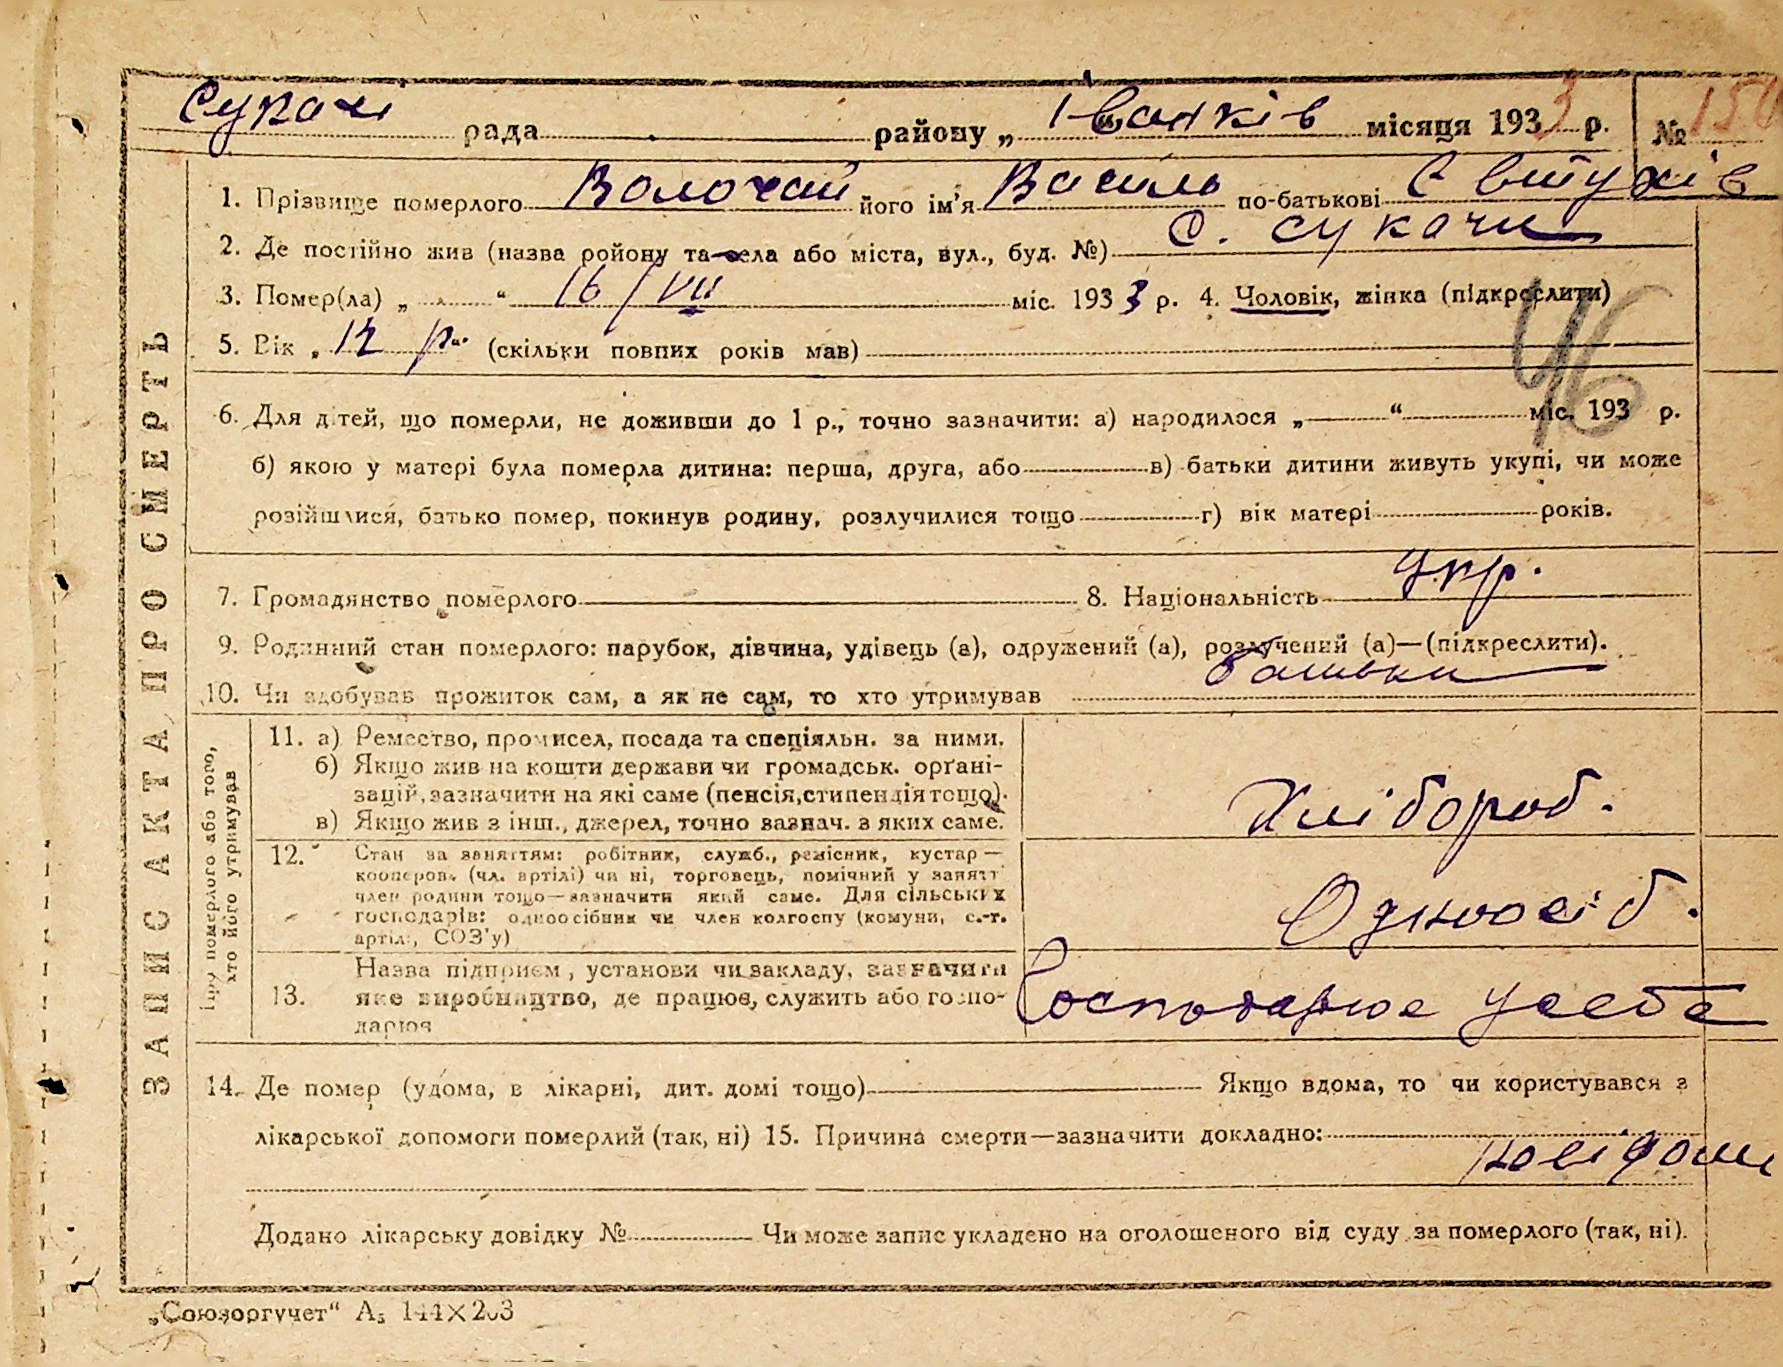 Сукачі рада района „ Іванків місяця 1933 р. № 150
1. Прізвище померлого Волочай його ім'я Василь по-батькові Євтухів
2. Де постійно жив (назва ройону та села або міста, вул., буд. №) С. Сукачи
3. Помер(ла) „ “ 16/VII міс. 1933 р. 4. Чоловік, жінка (підкреслити)
5. Вік „ 12 р. (скільки повних років мав)
46
6. Для дітей, що померли, не доживши до 1 р., точно зазначити: а) народилося „ “ міс. 193 р.
б) якою у матері була померла дитина: перша, друга, або в) батьки дитини живуть укупі, чи може
розійшлися, батько помер, покинув родину, розлучилися тощо г) вік матері років.
7. Громадянство померлого 8. Національність Укр.
9. Родинний стан померлого: парубок, дівчина, удівець (а), одружений (а), розлучений (а)—(підкреслити).
10. Чи здобував прожиток сам, а як не сам, то хто утримував батьки
ЗАПИС АКТА ПРО СМЕРТЬ
Про померлого або того,
хто його утримував
11. а) Ремество, промисел, посада та спеціяльн. за ними.
б) Якщо жив на кошти держави чи громадськ. орґані-
зацій, зазначити на які саме (пенсія, стипендія тощо).
в) Якщо жив з інш., джерел, точно зазнач. з яких саме.
Хлібороб.
12. Стан за заняттям: робітник, служб., ремісник, кустар —
кооперов. (чл. артілі) чи ні, торговець, помічний у занятт
член родини тощо—зазначити який саме. Для сільських
господарів: одноосібник чи член колгоспу (комуни, с.-г.
артілі, СОЗ'у)
Одноосіб.
Назва підприєм, установи чи закладу, зазначити
13. яке виробництво, де працює, служить або госпо-
дарює
Господарює у себе
14. Де помер (удома, в лікарні, дит. домі тощо) Якщо вдома, то чи користувався з
лікарської допомоги померлий (так, ні) 15. Причина смерти—зазначити докладно:
Додано лікарську довідку № Чи може запис укладено на оголошеного від суду за померлого (так, ні).
„Союзоргучет“ А₅ 144×203